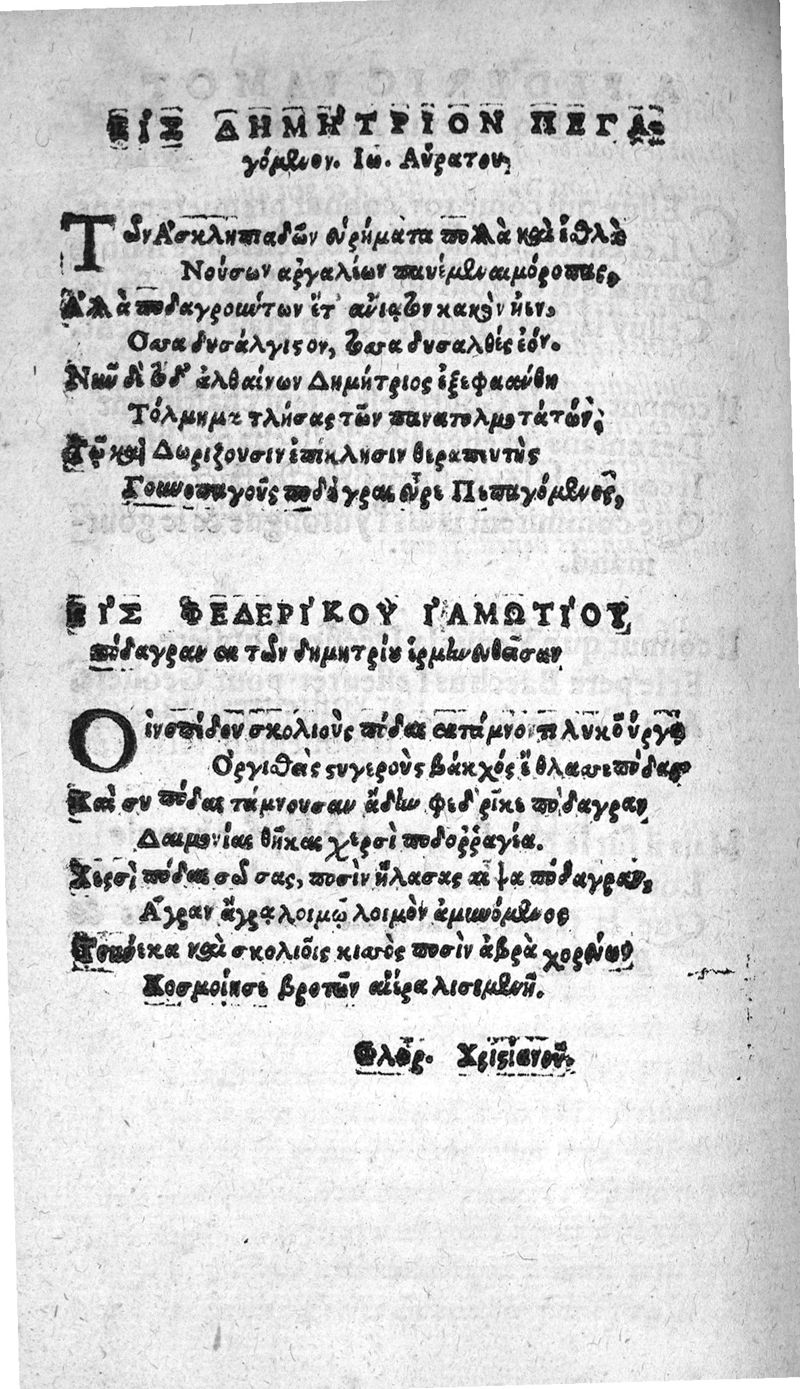 ΕΙΣ ΔΗΜΗΤΡΙΟΝ ΠΕΓΑ-
γόμενον. Ιω. Αὐρατου,
Τῶν Ἀσκληπιαδῶν εὑρήματα πολλὰ καὶ ἐσθλὰ
Νούσων ἀργαλέων
Ἀλλὰ ποδαγρούντων ἔτ' κακὸν ἦεν.
Οὕτω δυσάλγιστον, οὕτω δυσαλθές ἐόν.
Νῦν δ' ὅδ' ἀλθαίνων Δημήτριος ἐξεφαάνθη
Τόλμημα τλήσας τῶν πανατολμοτάτων,
Τῷ καὶ Δωρίζουσιν ἐπίκλησιν θεραπευτὴς
Γουνοπαγοῦς ποδάγρας εὗρε Πεπαγόμενος,
ΕΙΣ ΦΕΔΕΡΙΚΟΥ ΙΑΜΩΤΙΟΥ
πόδαγραν ἐκ τῶν δημητρίου ἑρμηνευθεῖσαν
Οἰνοπέδου σκολιοὺς πόδας ἐκτάμνοντι λυκούργῳ
Ὀργισθεὶς στυγεροὺς βάκχός ἔθλασε πόδας
Καὶ συ πόδας τάμνουσαν ἄδην φεδρῖκε πόδαγραν
Δαιμονίας θῆκας χερσὶ ποδοῤῥαγία.
Χερσὶ πόδας σώσας, ποσὶν ἤλασας αἶψα πόδαγραν,
Ἄγραν ἄγρᾳ λοιμῷ λοιμὸν ἀμυνόμενος
Τοὔνεκα καὶ σκολιοῖς κισσὸς ποσὶν ἁβρὰ χορεύων
Κοσμοίησε βροτῶν
Φλωρ. Χριστιανοῦ.